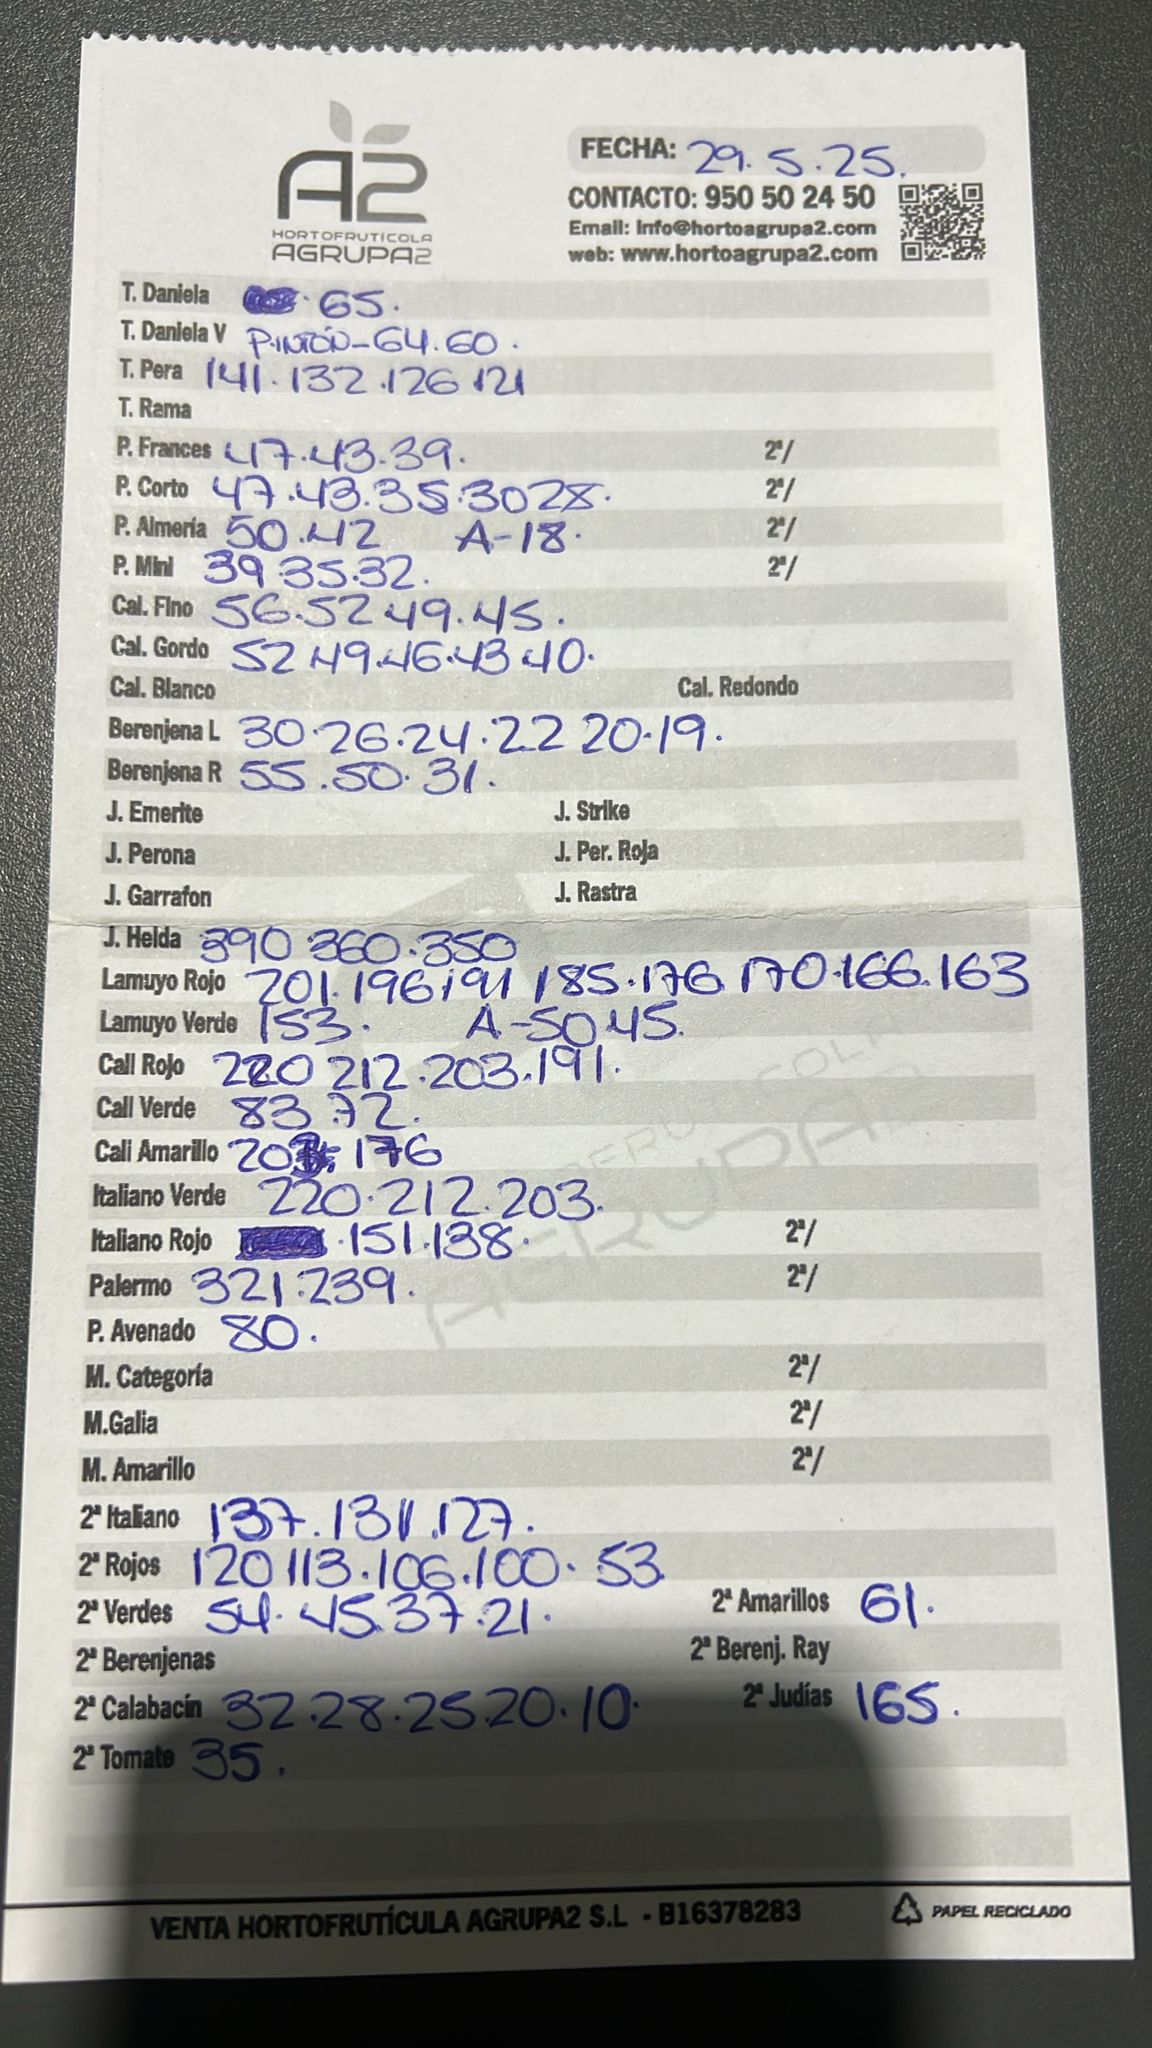 A2
HORTOFRUTÍCOLA
AGRUPA2
FECHA: 29.5.25.
CONTACTO: 950 50 24 50
Email: info@hortoagrupa2.com
web: www.hortoagrupa2.com
T. Daniela 65.
T. Daniela V PINTÓN-64.60.
T. Pera 141.132.126 121
T. Rama
P. Frances 47.43.39. 2ª/
P. Corto 47.43.35.30 28. 2ª/
P. Almería 50.42 A-18. 2ª/
P. Mini 39.35.32. 2ª/
Cal. Fino 56.52 49.45.
Cal. Gordo 52 49.46.43 40.
Cal. Blanco Cal. Redondo
Berenjena L 30.26.24.22 20.19.
Berenjena R 55.50.31.
J. Emerite J. Strike
J. Perona J. Per. Roja
J. Garrafon J. Rastra
J. Helda 390 360.350
Lamuyo Rojo 201.196 191 185.176.170.166.163
Lamuyo Verde 153. A-50.45.
Cali Rojo 220 212.203.191.
Cali Verde 83.72.
Cali Amarillo 203. 176
Italiano Verde 220.212.203.
Italiano Rojo .151.138. 2ª/
Palermo 321.239. 2ª/
P. Avenado 80.
M. Categoría 2ª/
M.Galia 2ª/
M. Amarillo 2ª/
2ª Italiano 137.131.127.
2ª Rojos 120 113.106.100. 53
2ª Verdes 54.45.37.21. 2ª Amarillos 61.
2ª Berenjenas 2ª Berenj. Ray
2ª Calabacín 32.28.25.20.10. 2ª Judías 165.
2ª Tomate 35.
VENTA HORTOFRUTÍCULA AGRUPA2 S.L - B16378283 PAPEL RECICLADO